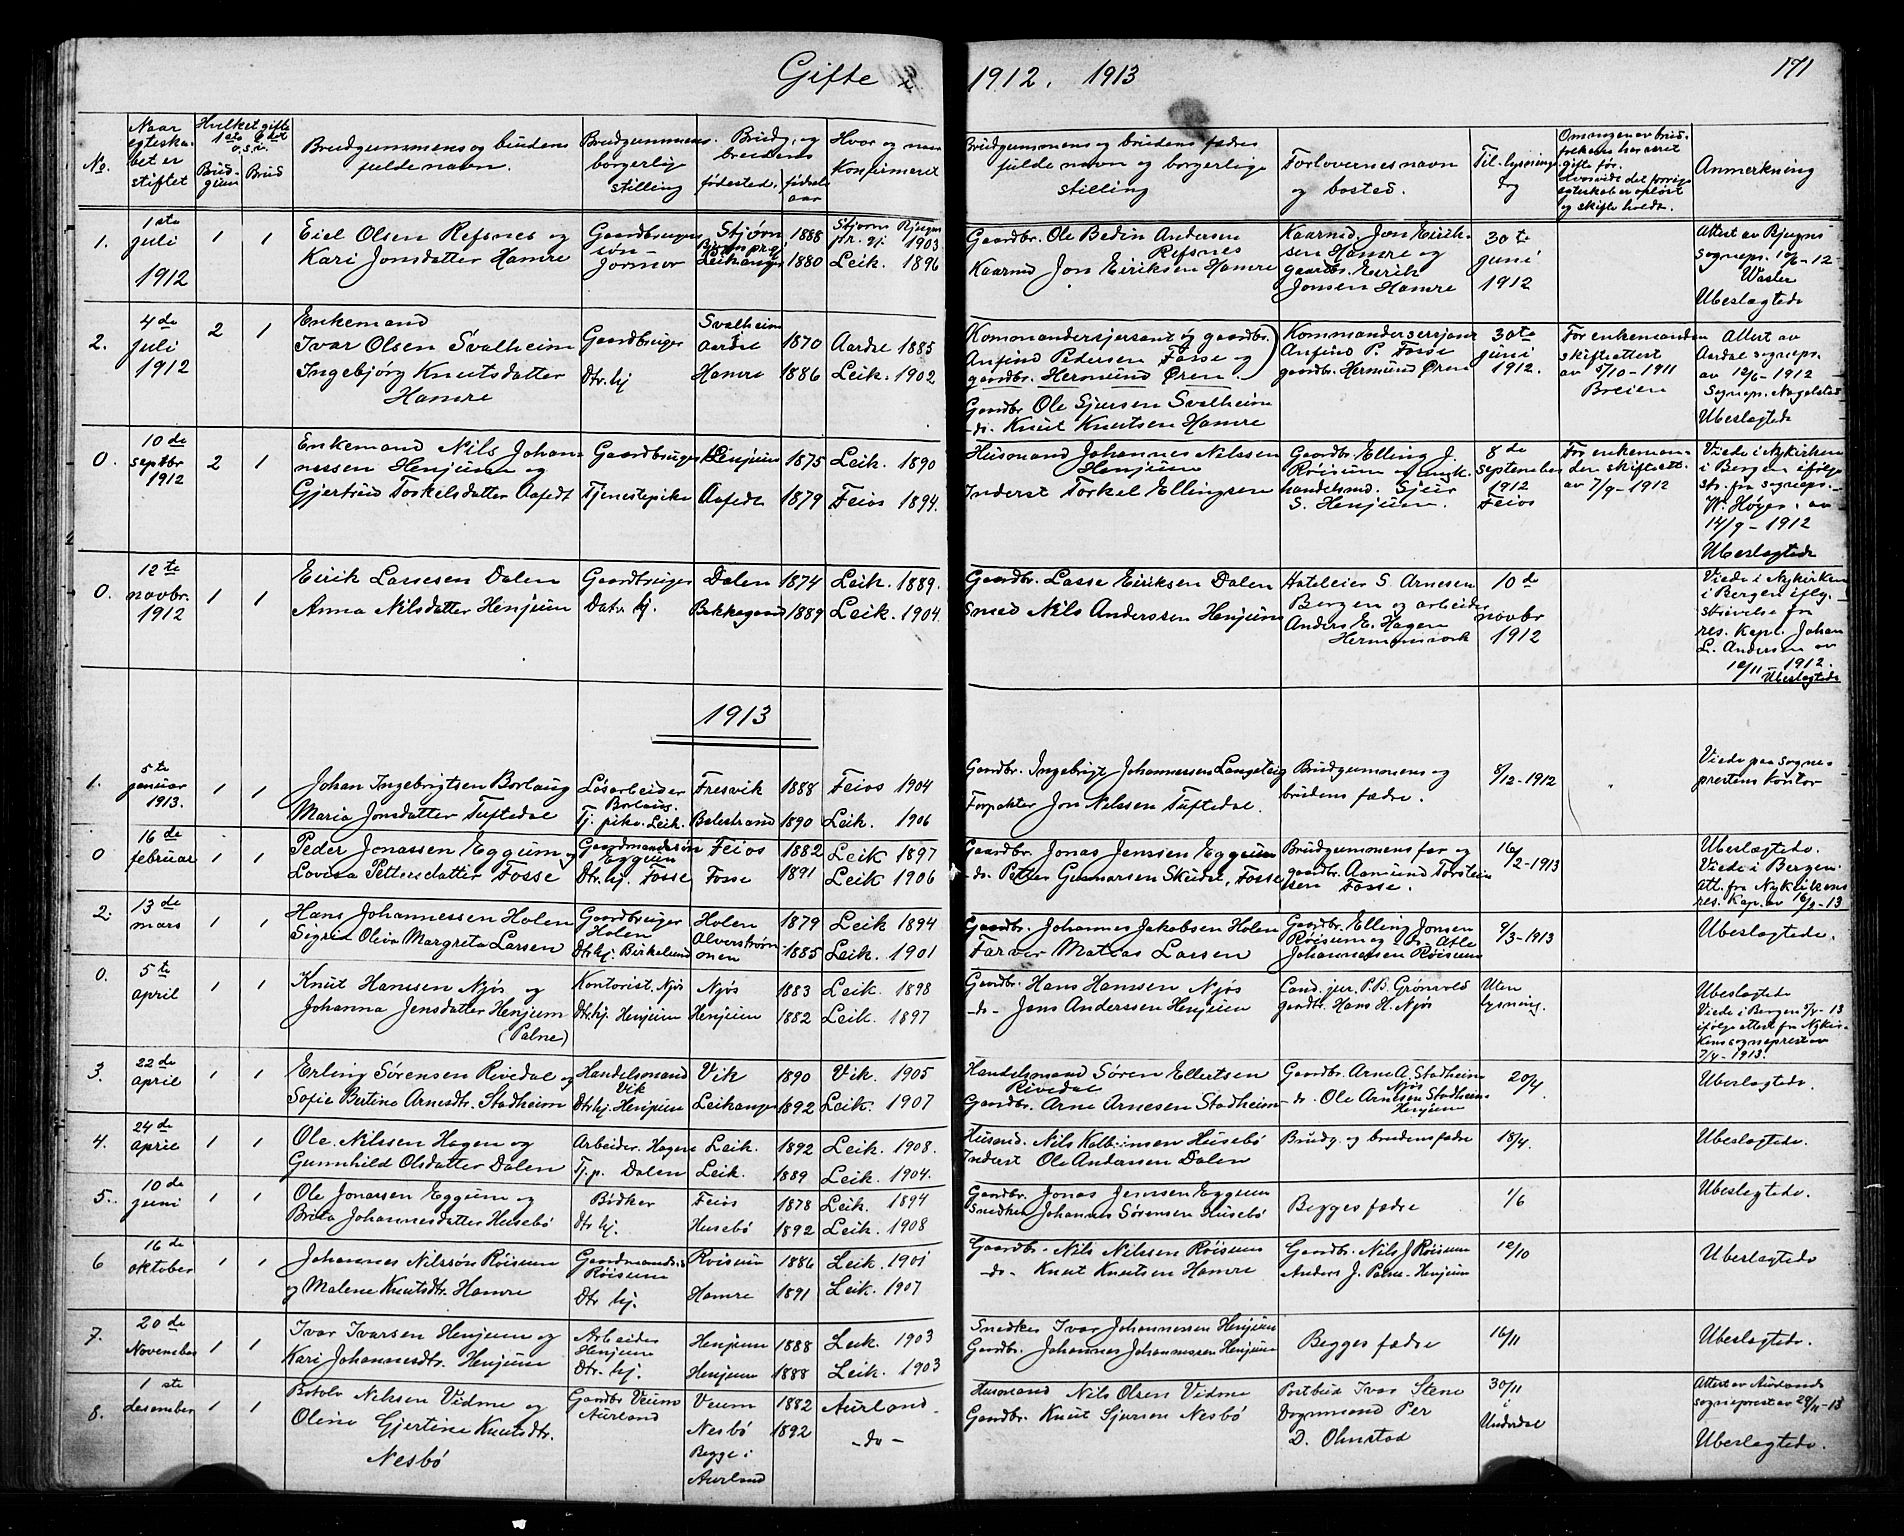 Gifte
1912. 1913
171
No.
Naar egteska-bet er stiftet
Hvilket gifte 1ste o.s.v.
Brud-gum
Brud
Brudgummens og brudens fulde navn.
Brudgummens borgerlige stilling
Brudg. og brudens
fødested.
fødsels aar
Hvor og naar Konfirmeret
Brudgummens og brudens fædres fulde navn og borgerlige stilling
Forlovernes navn og bosted.
Til lysnings dag
Anmerkning
1.
1ste juli 1912
1
1
Eiel Olsen Refsnes og
Kari Jonsdatter Hamre
Gaardbruger
Jormor
Stjørn
Leikanger
1888
1880
Stjørn pr. gj. 1903
Leik. 1896
Gaardbr. Ole Bedin Andersen Refsnes
Kaarmd Jon Eiriksen Hamre
Kaarmd. Jon Eirik-
sen Hamre og
gaardbr. Eirik
Jonsen Hamre
30te
juni
1912
Attest av
sognepr. 10/6-12
Ubeslagtede
2.
4de juli 1912
2
1
Enkemand
Ivar Olsen Svalheim
Ingebjørg Knutsdatter
Hamre
Gaardbruger
Dtr. hj
Svalheim
Aardal
Hamre
1870
1886
Aardal 1885
Leik. 1902
Kommandersjersant og gaardbr.
Anfind Pedersen Fosse og
gaardbr. Hermund Øren.
Gaardbr. Ole Sjursen Svalheim
do. Knut Knutsen Hamre
Kommandersersjant
Anfind P. Fosse
gaardbr. Hermund Øren
30te
juni
1912.
For enkemanden
skifteattest
av 5/10-1911
Breien
Attest av
Aardal sognepr.
av 12/6-1912
Sognepr. Nagelstad
Ubeslagtede
0.
10de septbr 1912
2
1
Enkemand Nils Johan-
nessen Henjum og
Gjertrud Torkelsdatter Aafedt
Gaardbruger
Tjenestepike
Henjum
Aafedt
1875
1879
Leik. 1890
Feios 1894.
Husmand Johannes Nilssen
Henjum
Inderst Torkel Ellingsen
Gaardbr. Elling J.
Røisum og
handelsmd. Sjur
S. Henjum.
8de
september
1912
Feios
For enkeman-
den skifteatt.
av 7/9-1912
Viede i Nykirken
i Bergen ifølge
att. fra sognepr.
W. Høyer. av
14/9-1912
Ubeslagtede
0.
12te novbr. 1912
1
1
Eirik Lassesen Dalen
Anna Nilsdatter Henjum
Gaardbruger
Datr. hj.
Dalen
Bakkegaard
1874
1889
Leik. 1889.
Leik. 1904.
Gaardbr. Lasse Eiriksen Dalen
Smed Nils Anderssen Henjum
Hoteleier S. Arnesen
Bergen og arbeider
Anders E. Hagen
Hermansverk
10de
novbr
1912
Viede i Nykirken
i Bergen iflg.
skrivelse fra
res. Kapl. Johan
L. Andersen av
12/11-1912.
Ubeslagtede
1913
1.
5te januar 1913.
1
1
Johan Ingebrigtsen Borlaug
Maria Jonsdatter Tuftedal
Løsarbeider
Borlaug.
Tj. pike. Leik.
Fresvik
Balestrand
1888
1890
Feios 1904
Leik. 1906
Gaardbr. Ingebrigt Johannessen Langeteig
Forpakter Jon Nilssen Tuftedal.
Brudgummens og
brudens fædre.
8/12-1912
Viede paa sogne-
prestens kontor
0
16de februar
1
1
Peder Jonassen Eggum og
Lovisa Pettersdatter Fosse
Gaardmandssøn
Eggum
Dtr. hj. Fosse
Feios
Fosse
1882
1891
Leik 1897
Leik 1906
Gaardbr. Jonas Jenssen Eggum
do. Petter Gunnarsen Skudal, Fosse
Brudgummens far og
gaardbr. Aamund Torstein-
sen Fosse.
16/2-1913
Ubeslagtede.
Viede i Bergen.
Att. fra Nykirkens
res. Kap. av 16/2-13
2.
13de mars
1
1
Hans Johannessen Holen
Sigrid Oliva Margreta Larsen
Gaardbruger
Holen
Dtr. hj. Birkelund
Holen
Alverstrøm-
men
1879
1885
Leik 1894
Leik. 1901
Gaardbr. Johannes Jakobsen Holen
Farver Matias Larsen
Gaardbr. Elling Jonsen
Røisum og do. Atle
Johannessen Røisum
9/3-1913
Ubeslagtede.
0.
5te april
1
1
Knut Hanssen Njøs og
Johanna Jensdatter Henjum
(Palne)
Kontorist. Njøs
Dtr. hj. Henjum
Njøs
Henjum
1883
1882
Leik. 1898
Leik. 1897
Gaardbr. Hans Hanssen Njøs
do. Jens Anderssen Henjum
Cand. jur. P. B. Grønvold
gardbr. Hans H. Njøs
Uten
lysning.
Ubeslagtede
Viede i Bergen 5/4-13
ifølge attest fra Nykir-
kens sogneprest av
7/4-1913.
3.
22de april
1
1
Erling Sørensen Rivedal og
Sofie Bertine Arnesdtr. Stadheim
Handelsmand
Vik
Dtr. hj. Henjum
Vik
Leikanger
1890
1892
Vik. 1905
Leik. 1907
Handelsmand Søren Ellertsen
Rivedal
Gaardbr. Arne Arnesen Stadheim
Gaardbr. Arne A. Stadheim
Njøs
do. Ole Arnesen Stadheim
Henjum
20/4
Ubeslagtede.
4.
24de april
1
1
Ole Nilssen Hagen og
Gunnhild Olsdatter Dalen
Arbeider. Hagen
Tj. p. Dalen
Leik.
Leik.
1892
1889
Leik. 1908.
Leik. 1904.
Husmd. Nils Kolbeinsen Husebø
Inderst Ole Anderssen Dalen
Brudg. og brudens fædre
18/4
Ubeslagtede.
5.
10de juni
1
1
Ole Jonassen Eggum og
Brita Johannesdatter Husebø
Bødker
Dtr. hj.
Feios
Husebø
1878
1892
Leik. 1894
Leik. 1908
Gaardbr. Jonas Jenssen Eggum
Snedker Johannes Sørensen Husebø
Begges fædre
1/6
Ubeslagtede.
6
16de oktober
1
1
Johannes Nilssøn Røisum
og Malene Knutsdtr. Hamre
Gaardmandss.
Røisum
Dtr hj.
Røisum
Hamre
1886
1891
Leik. 1901
Leik. 1907
Gaardbr. Nils Nilssen Røisum
-do- Knut Knutsen Hamre
Gaardbr. Nils J Røisum
Anders J. Palne-Henjum
12/10
Ubeslagtede
7.
20de November
1
1
Ivar Ivarsen Henjum og
Kari Johannesdtr. Henjum
Arbeider
Henjum
Dtr. hj.
Henjum
Henjum
1888
1888
Leik. 1903
Leik. 1903
Snedker Ivar Johannessen Henjum
Gaardbr. Johannes Johannessen Henjum
Begges fædre
16/11
Ubeslagtede.
8.
1ste desember
1
1
Botolv Nilsen Vidme og
Oline Gjertine Knutsdtr.
Nesbø
Gaardbr Veum
Aurland
Veum
Nesbø
Begge i
Aurland
1882
1892
Aurland-
-do-
Husmand Nils Olsen Vidme
Gaardbr. Knut Sjursen Nesbø
Postbud Ivar Stene
Dognmand Per
D. Ohnstad
30/11
i
Undredal
Attest av Aurlands
sogneprest av 29/11-13
Ubeslagtede.